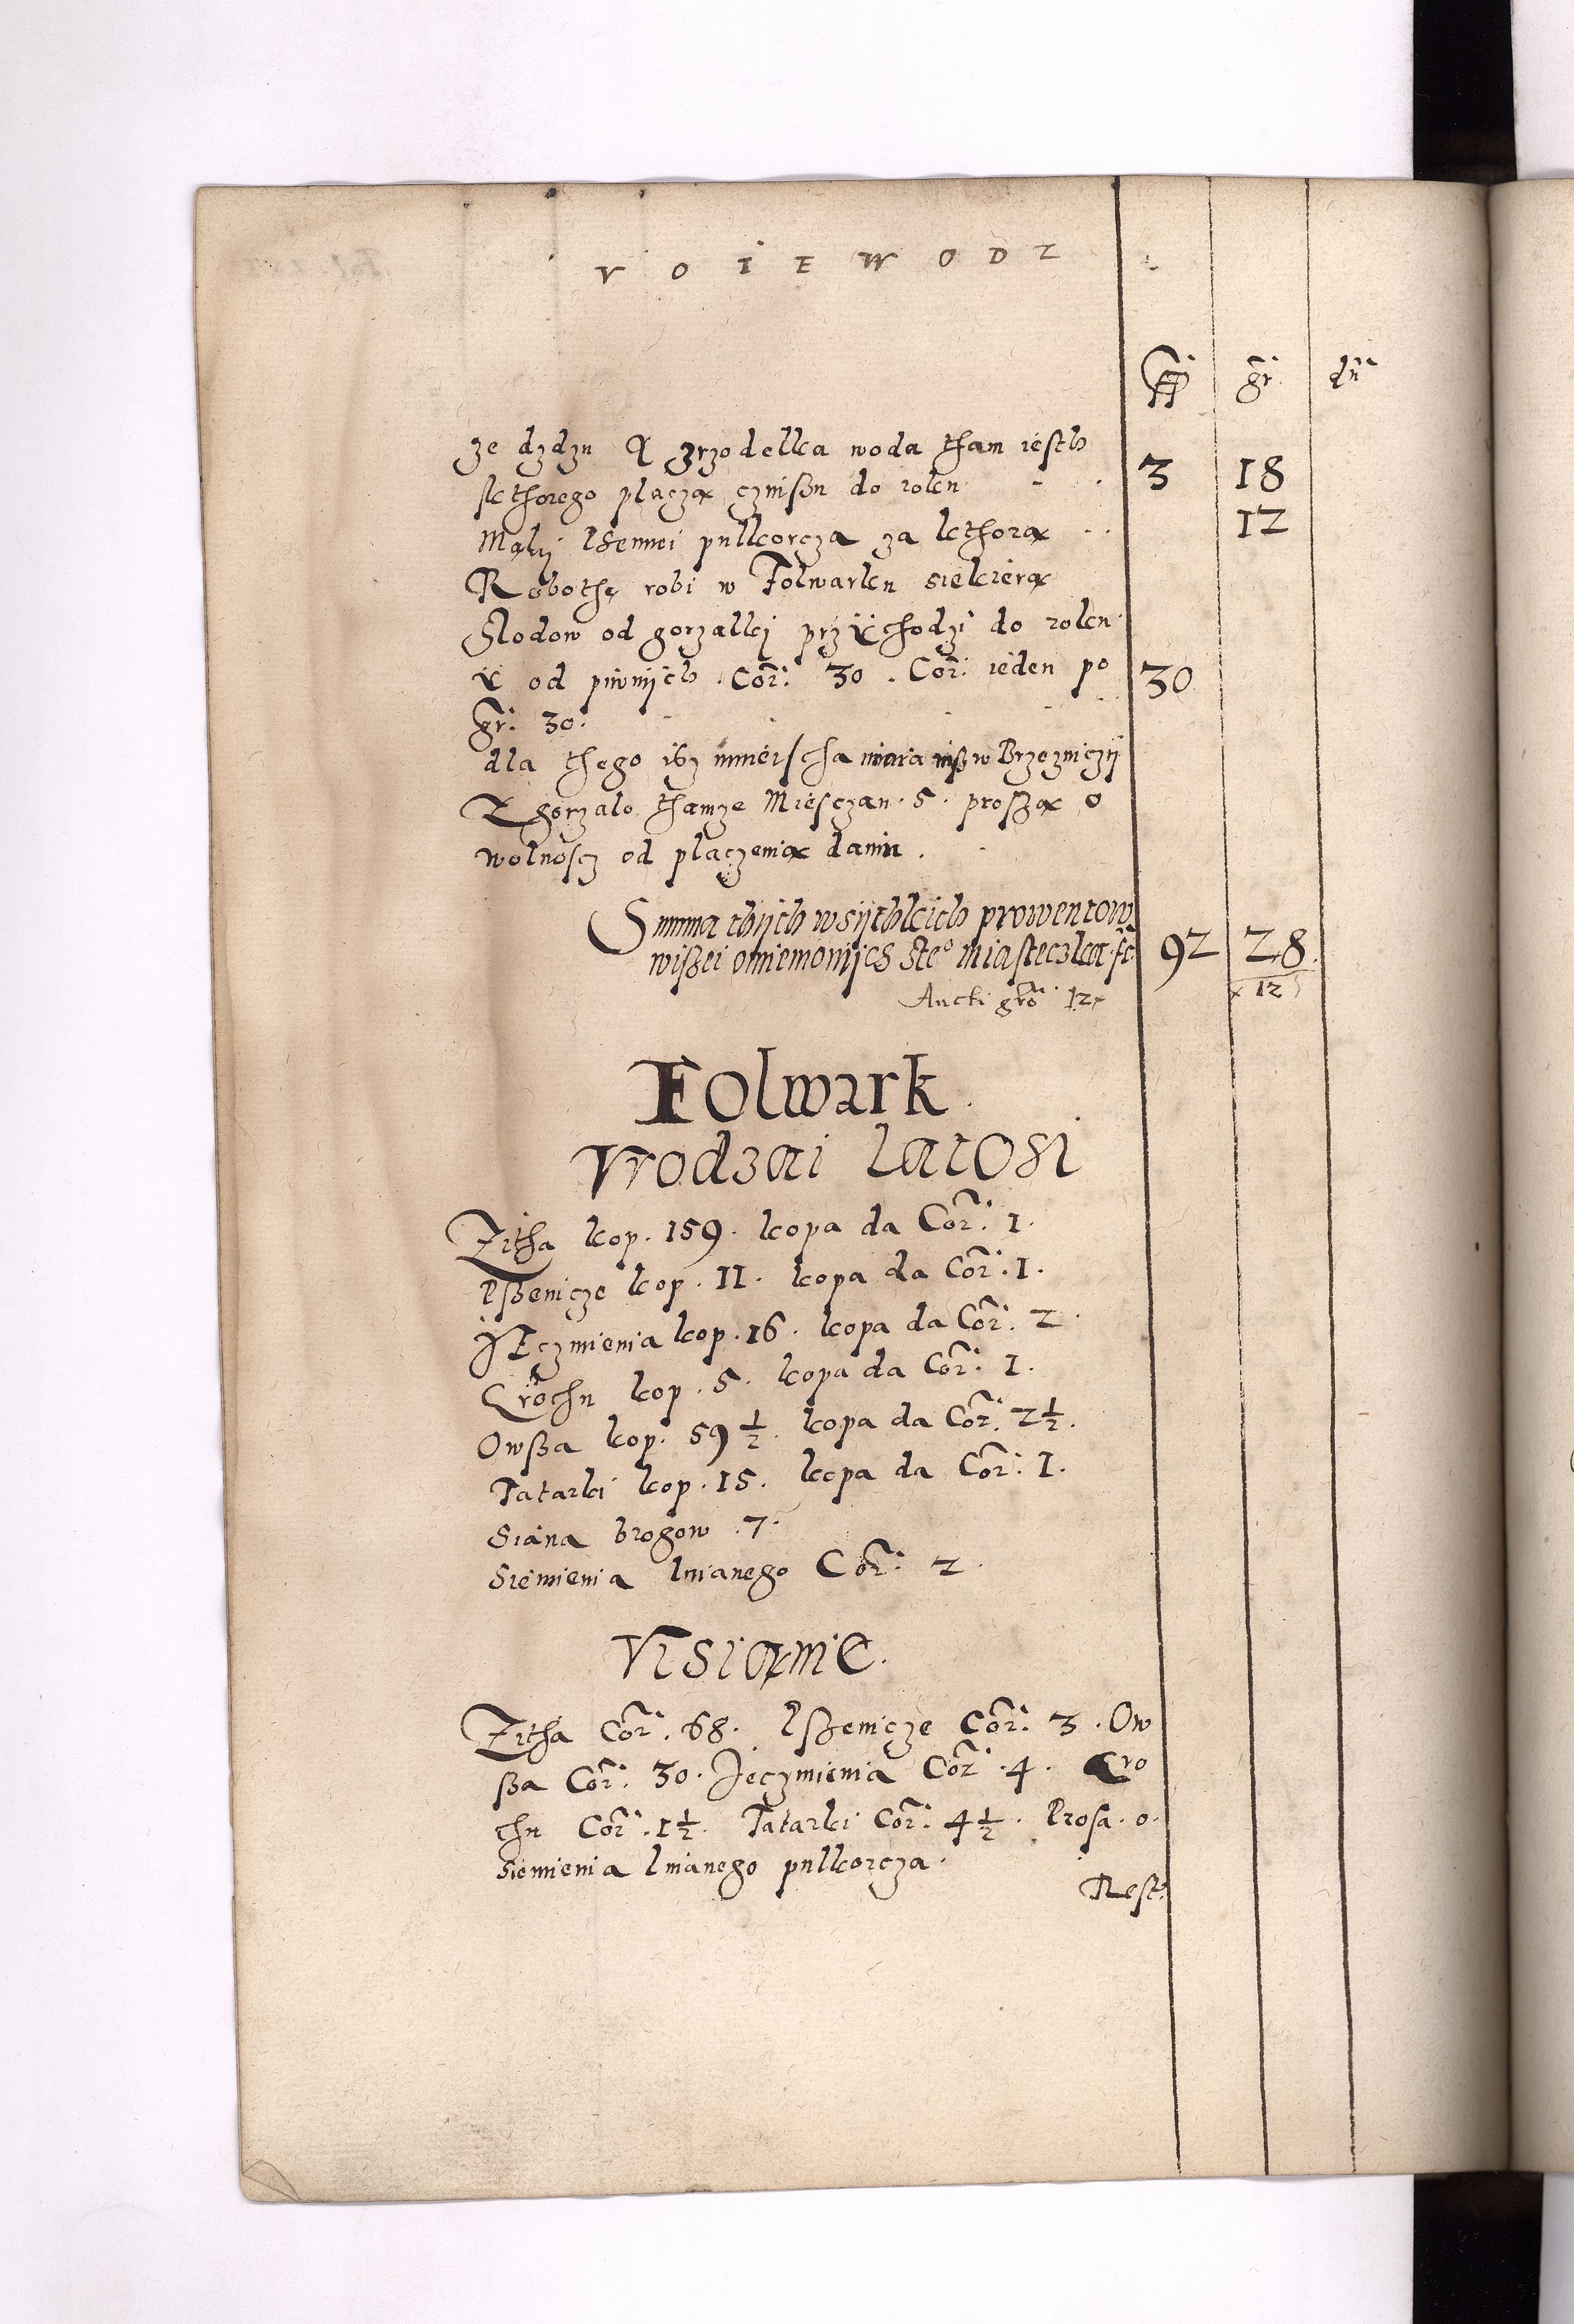 VOIEWODZ
fl gr dn
ze dzdzu Y zrzodelka woda tham iesth
kthorego placzą czinßu do roku 3 18
Mąky Pßennei pulkorcza za kthorą 12
Robothę robi w Folwarku siekierą
Slodow od gorzalki przychodzi do roku
y od piwnych Cor: 30. Cor: ieden po 30
gr: 30.
dla thego isz mnieischa miara niß w Brzezniczy
Zgorzalo thamze Miesczan. 5. proszą o
wolnoscz od placzenia danin.
Summa thych wsythkich prowentow
wißei omienionych Zteo miasteczka fc 92 28
Aucti gro 12 12
Folwark
Vrodzai Latosi
Zitha kop. 159. kopa da Cor: 1.
Pßenicze kop. 11. kopa da Cor: 1.
JEczmienia kop. 16. kopa da Cor: 2.
Grochu kop. 5. kopa da Cor: 1.
Owßa kop. 59 1/2. kopa da Cor: 2 1/2.
Tatarki kop. 15. kopa da Cor: 1.
Siana brogow 7.
Siemienia lnianego Cor: 2
Visianie.
Zitha Cor. 68. Pßenicze Cor: 3. Ow
ßa Cor: 30. Jeczmienia Cor. 4. Gro
chu Cor. 1 1/2. Tatarki Cor: 4 1/2. Prosa. 0.
Siemienia lnianego pulkorcza.
Rest: